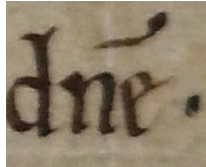 dn̄e.